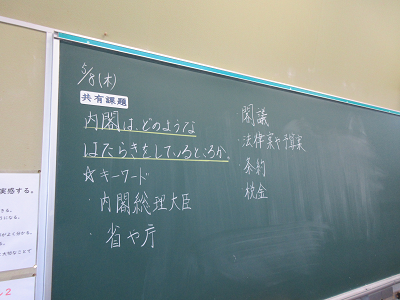 5/8(木)
共有課題
内閣は、どのような
はたらきをしているところか。
☆キーワード
・内閣総理大臣
・省や庁
閣議
・法律案や予算案
・条約
税金
実感する。